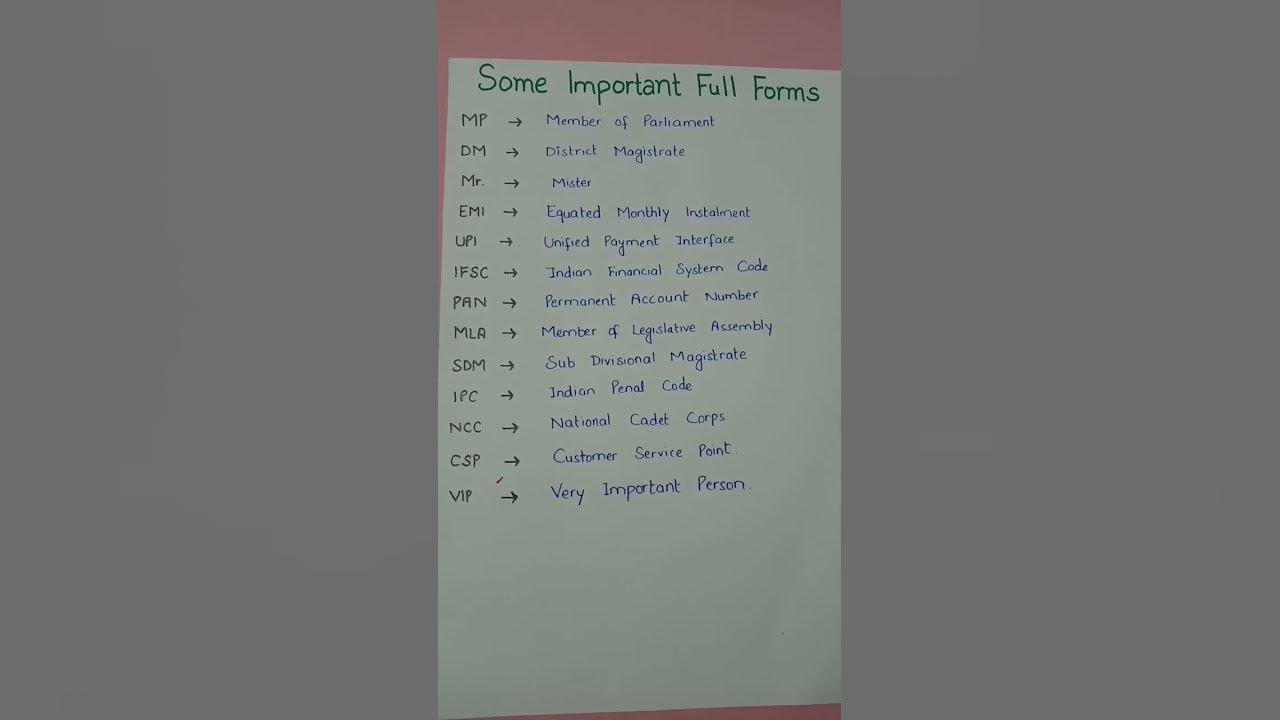 Some Important Full Forms
MP → Member of Parliament
DM → District Magistrate
Mr. → Mister
EMI → Equated Monthly Instalment
UPI → Unified Payment Interface
IFSC → Indian Financial System Code
PAN → Permanent Account Number
MLA → Member of Legislative Assembly
SDM → Sub Divisional Magistrate
IPC → Indian Penal Code
NCC → National Cadet Corps
CSP → Customer Service Point.
VIP → Very Important Person.